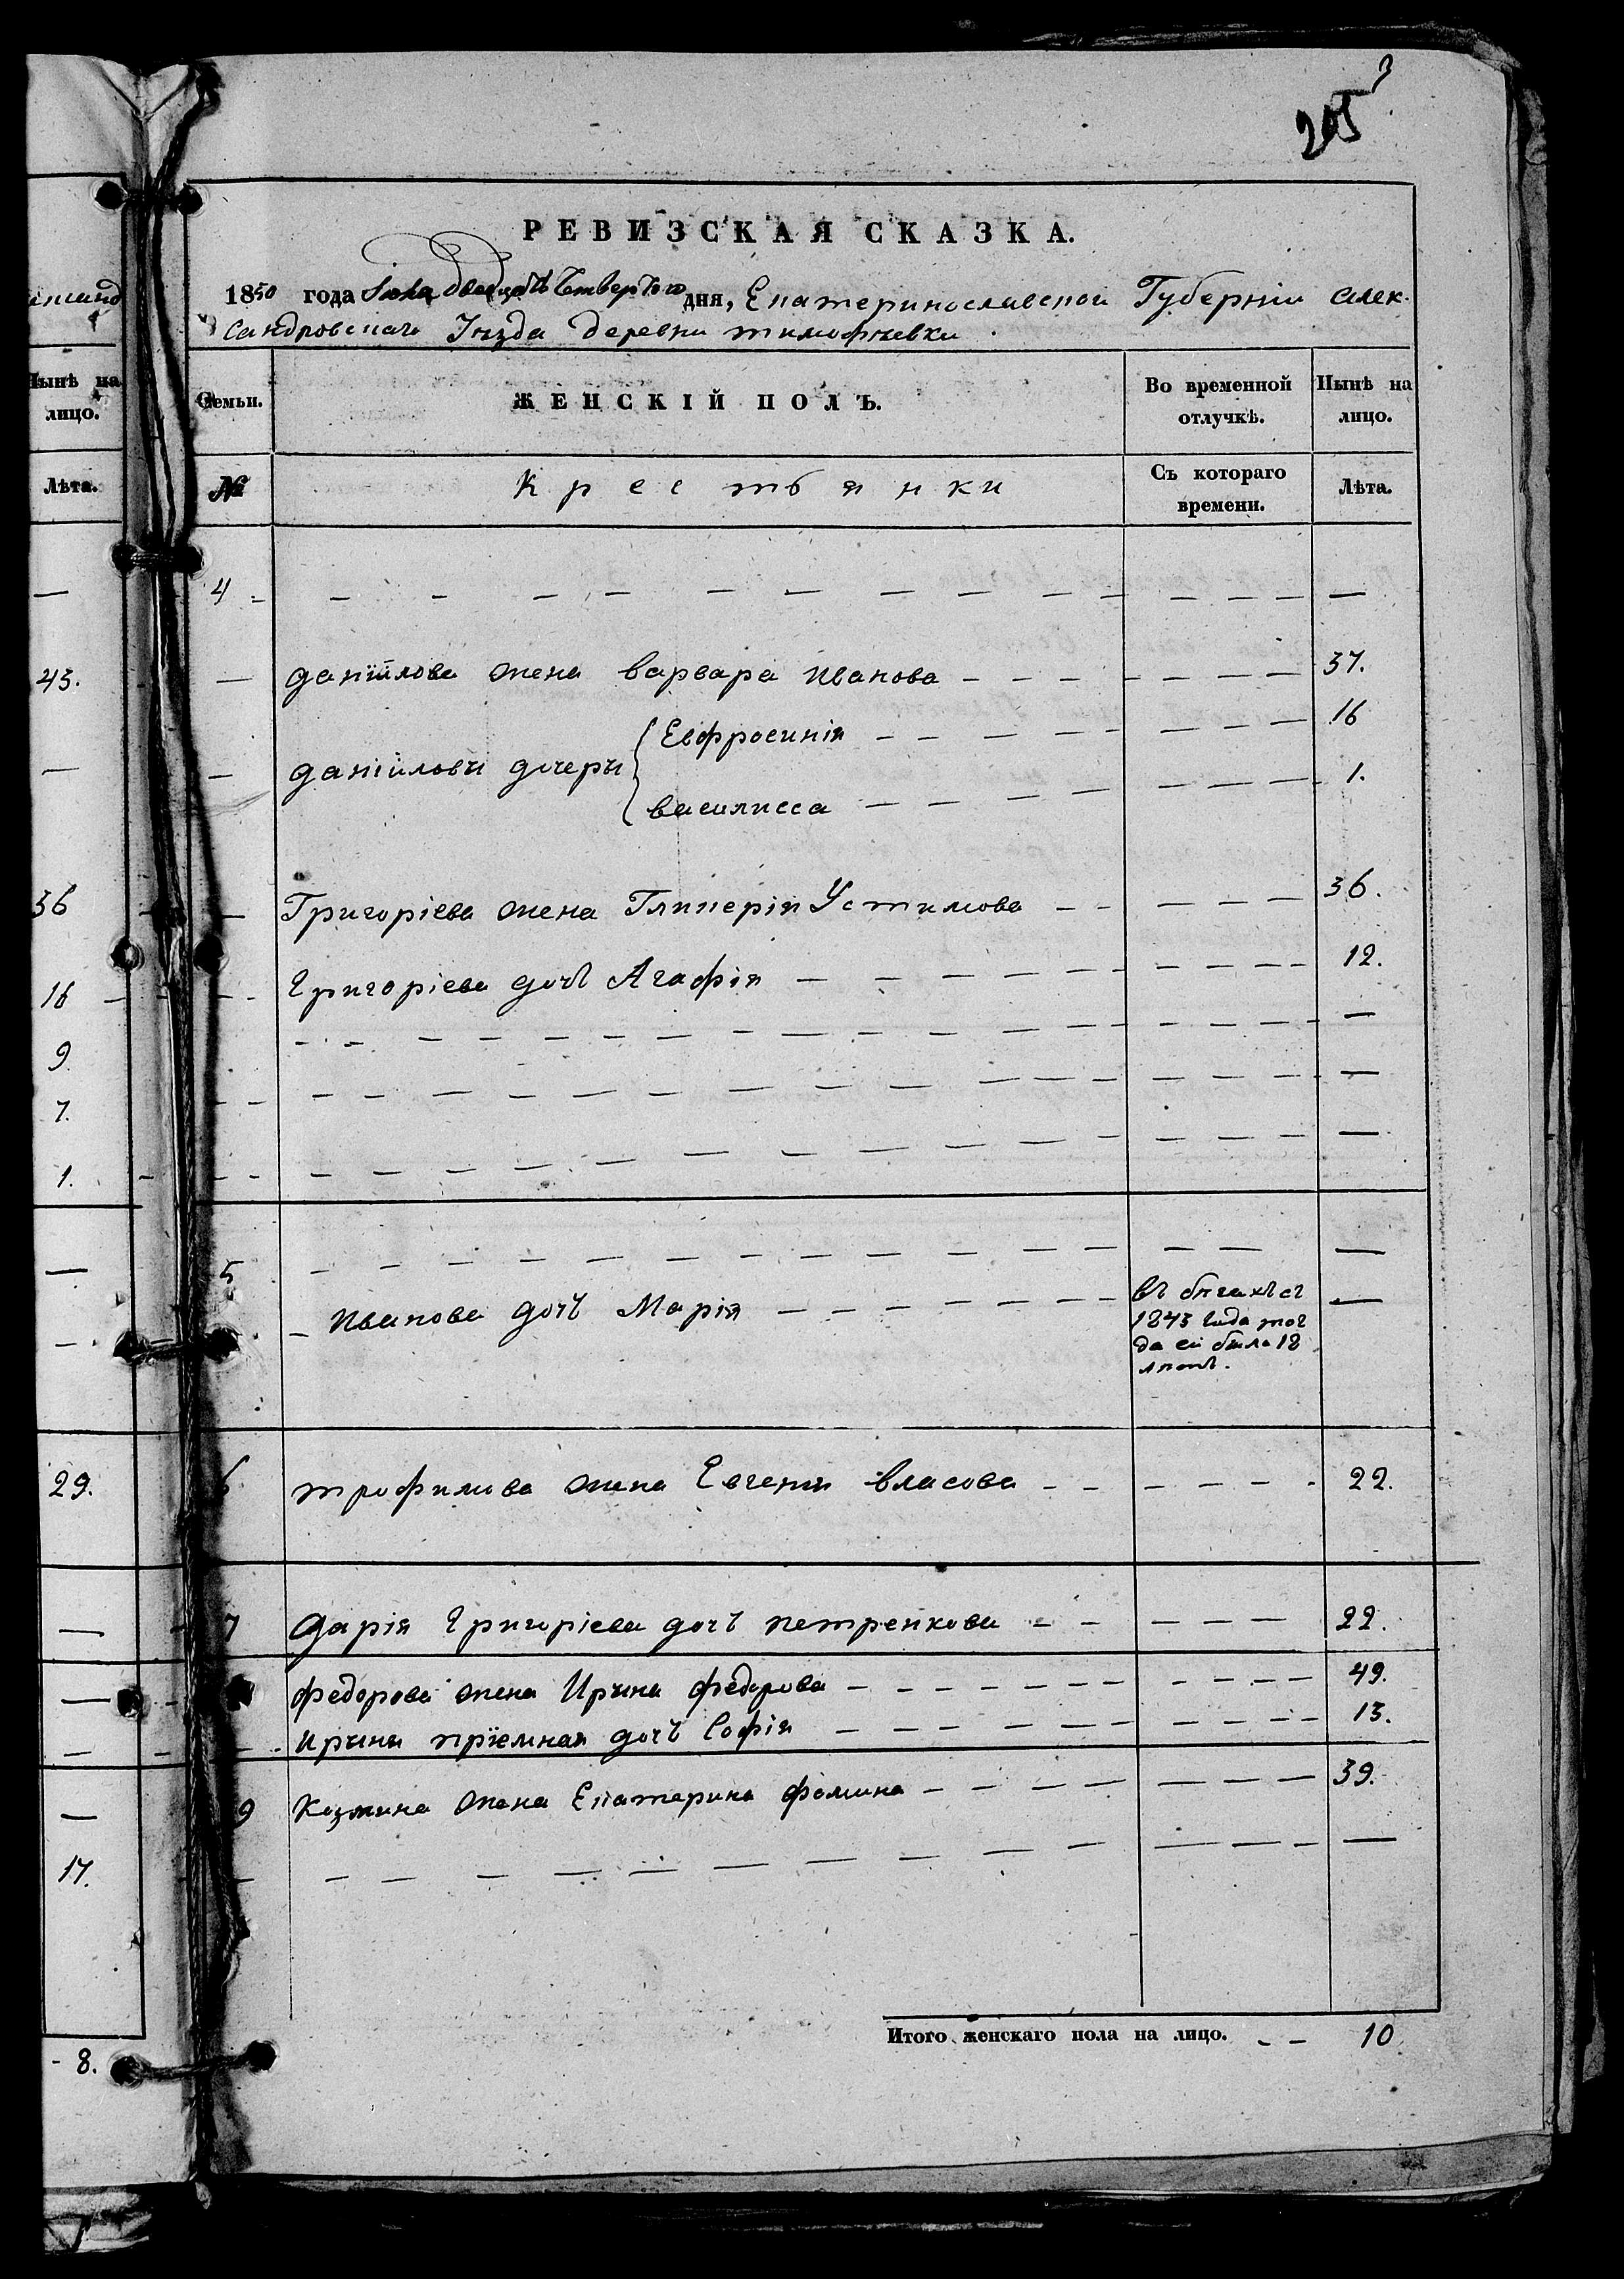 3
205
РЕВИЗСКАЯ СКАЗКА.
1850 года двадцать Четвертого дня, Екатеринославской Губернiи Алек-
сандровскаго Уѣзда деревни тимофѣевки
Нынѣ на
лицо.
Семьи.
ЖЕНСКIЙ ПОЛЪ.
Во временной
отлучкѣ.
Нынѣ на
лицо.
Лѣта.
№
Крестьянки
Съ котораго
времени.
Лѣта.
—
4
—
43.
данiилова жена варвара иванова
37.
Евфросинiя
16
—
данiиловы дочеры
василисса
1.
36
Григорiева жена Гликерiя Устимова
36.
16
григорiева дочь Агафiя
12.
9
—
7.
—
1.
—
—
5
—
—
иванова дочь Марiя
въ бѣгахъ съ
1843 года тог
да ей было 18
лѣтъ.
—
29.
6
трофимова жена Евгенiя власова
22.
—
7
дарiя григорiева дочь петренкова
22.
—
федорова жена Ирина федорова
49.
—
ирины прiемная дочь Софiя
13.
—
9
Козмина жена Екатерина фомина
39.
17.
—
Итого женскаго пола на лицо.
10
- 8.